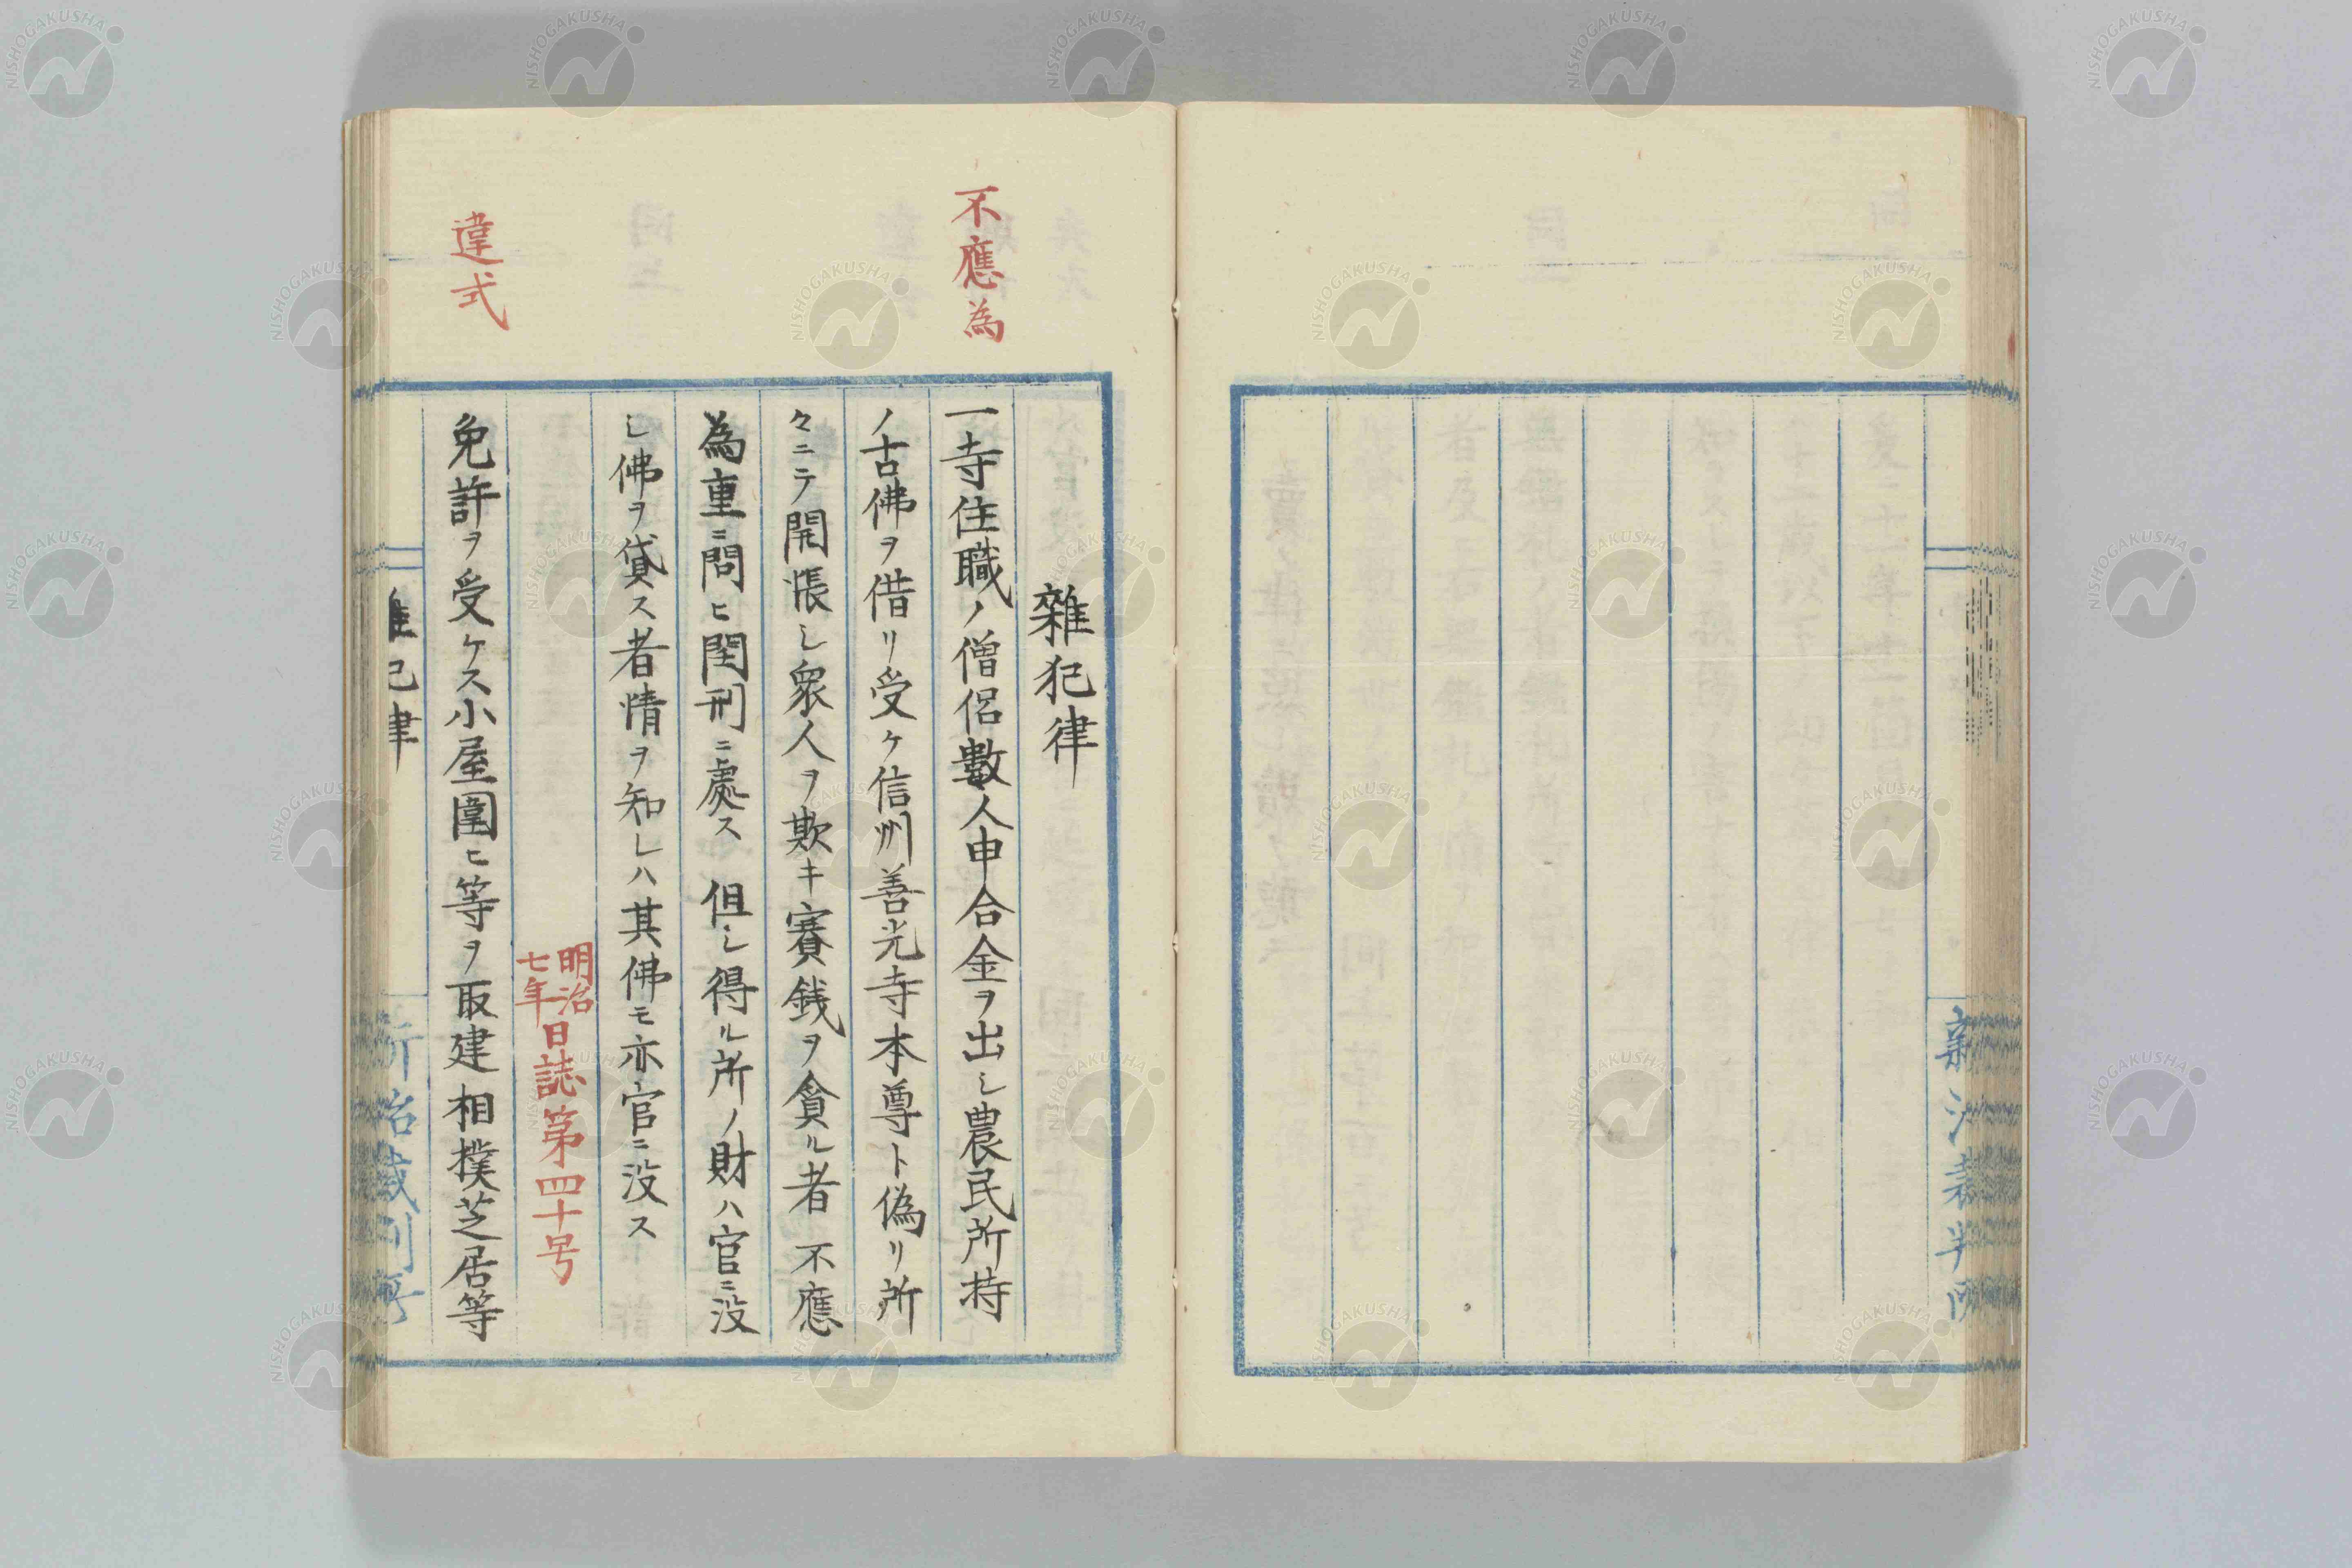 新治裁判所
不應為
雜犯律
一寺住職ノ僧侶數人申合金ヲ出シ農民所持
ノ古佛ヲ借リ受ケ信州善光寺本尊ト偽リ所
々ニテ開帳シ衆人ヲ欺キ賽銭ヲ貪ル者不應
為重ニ問ヒ閏刑ニ處ス但シ得ル所ノ財ハ官ニ没
シ佛ヲ貸ス者情ヲ知レハ其佛モ亦官ニ没ス
明治七年日誌第四十号
違式
免許ヲ受ケス小屋圍ヒ等ヲ取建相撲芝居等
雜犯律
新治裁判所
NISHOGAKUSHA